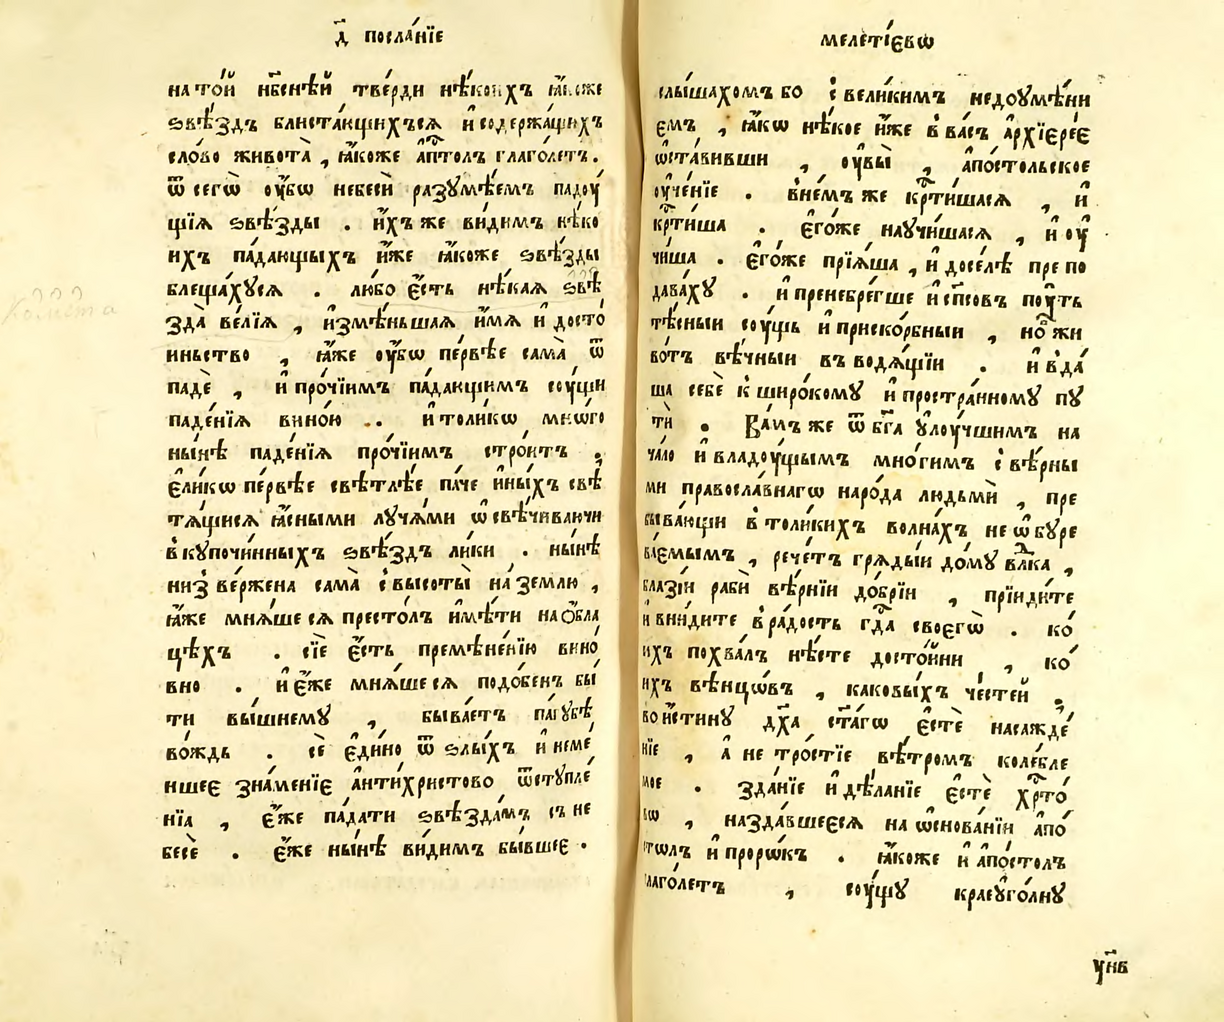 д҃ посла́нїе
на то́й нб҃снѣ́й тве́рди нѣ́коихъ ꙗ҆́коже
ѕвѣ́здъ блиста́ющихъсѧ и҆ содержа́щихъ
сло́во живота̀ , ꙗ҆́коже а҆пⷭ҇толъ глаго́летъ .
ѿ сегѡ̀ оу҆́бѡ небеси̏ разумѣ́емъ падоу́
щїѧ ѕвѣ́зды . и҆́хъ же ви́димъ нѣ́ко
ихъ па́дающыхъ и҆́же ꙗ҆́коже ѕвѣ́зды
блеща́хусѧ . любо є҆́сть нѣ́каѧ ѕвѣ
зда̀ ве́лїѧ , и҆змѣ́ньшаѧ и҆́мѧ и҆ досто́
иньство , ꙗ҆́же оу҆́бѡ пе́рвѣе сама̀ ѿ
падѐ , и҆ про́чїимъ па́дающимъ соу́щи
паде́нїѧ вино́ю . и҆ толи́кѡ мнѡ́го
ны́нѣ паде́нїѧ про́чїимъ стро́итъ .
є҆ли́кѡ пе́рвѣе свѣтлѣ́е па́че и҆ны́хъ свѣ
тѧ́щиисѧ ꙗ҆́сными луча́ми ѡ҆свѣ́чиваючи
в҆купочи́нныхъ ѕвѣ́здъ ли́ки . ны́нѣ
низ̾ве́ржена сама̀ с҆ высоты̀ на зе́млю ,
ꙗ҆́же мнѧ́ше сѧ престо́лъ и҆мѣ́ти на ѻ҆́бла
цѣ́хъ . сїѐ є҆́сть премѣне́нїю вино́
вно . и҆ є҆́же мнѧ́ше сѧ подо́бенъ бы́
ти вы́шнему , быва́етъ па́губѣ
во́ждь . се̏ є҆ди́но ѿ ѕлы́хъ и҆ неме́
ншее зна́менїе а҆нти́христово ѿступле́
нїа , є҆́же па́дати ѕвѣзда́мъ съ не
бесе̏ . є҆́же ны́нѣ ви́димъ бы́вшее .
меле́тїевѡ
слы́шахомъ бо с҆ вели́кимъ недоумѣ́ни
емъ , ꙗ҆́кѡ нѣ́кое и҆́же в҆ ва́съ а҆рхїере́е
ѡ҆ста́вивши , оу҆вы̀ , а҆по́стольское
оу҆че́нїе . в̾не́мъ же крⷭ҇ти́шасѧ , и҆
крⷭ҇ти́ша . є҆го́же научи́шасѧ , и҆ оу҆
чи́ша . є҆го́же прїѧ́ша , и҆ досе́лѣ пре по
дава́ху . и҆ пренебре́гше и҆ сп҃совъ поу́ть
тѣ́сныи соу́щь и҆ приско́рбныи , но̀ жи
во́тъ вѣ́чныи въ водѧ́щїи . и҆ в̾да́
ша себѐ к҆ широ́кому и҆ простра́нному пу
ти̏ . Ва́мъ же ѿ бг҃а ᲂу҆лоу́чшимъ на
ча́ло и҆ владоу́щымъ мно́гимъ с҆ вѣ́рны
ми правосла́внагѡ наро́да людьми̏ , пре
быва́ющи в҆ толи́кихъ волна́хъ не ѡ҆буре
ва́емымъ , рече́тъ грѧды́и до́му влⷣка ,
блазі́и раби̏ вѣ́рнїи до́брїи , прїиди́те
и҆ вни́дите в҆ ра́дость гⷭ҇да своегѡ̀ . ко́
ихъ похва́лъ нѣ́сте досто́йни , ко́
ихъ вѣнцѡ́въ , каковы́хъ че́стей ,
во и҆́стину дх҃а ст҃а́гѡ є҆стѐ насажде́
нїе , а҆ не тро́стїе вѣ́тромъ коле́бле
мое . зда́нїе и҆ дѣ́ланїе є҆стѐ хрⷭ҇то́
вѡ , назда́вшеесѧ на ѡ҆снова́нїи а҆по́
столъ и҆ проро́къ . ꙗ҆́коже и҆ а҆по́столъ
глаго́летъ , соу́щу краеуго́лну
ун҃в